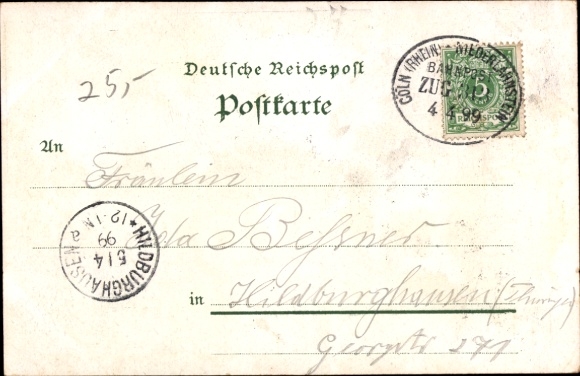 25,-
Deutsche Reichspost
Postkarte
CÖLN (RHEIN) - NIEDERLAHNSTEIN
BAHNPOST
ZUG
4 4 99
5
REICHSPOST
An
Fräulein
Ida Bessner
HILDBURGHAUSEN
5/4
99
*12-1N
in Hildburghausen (Thüringen)
Georgstr 271